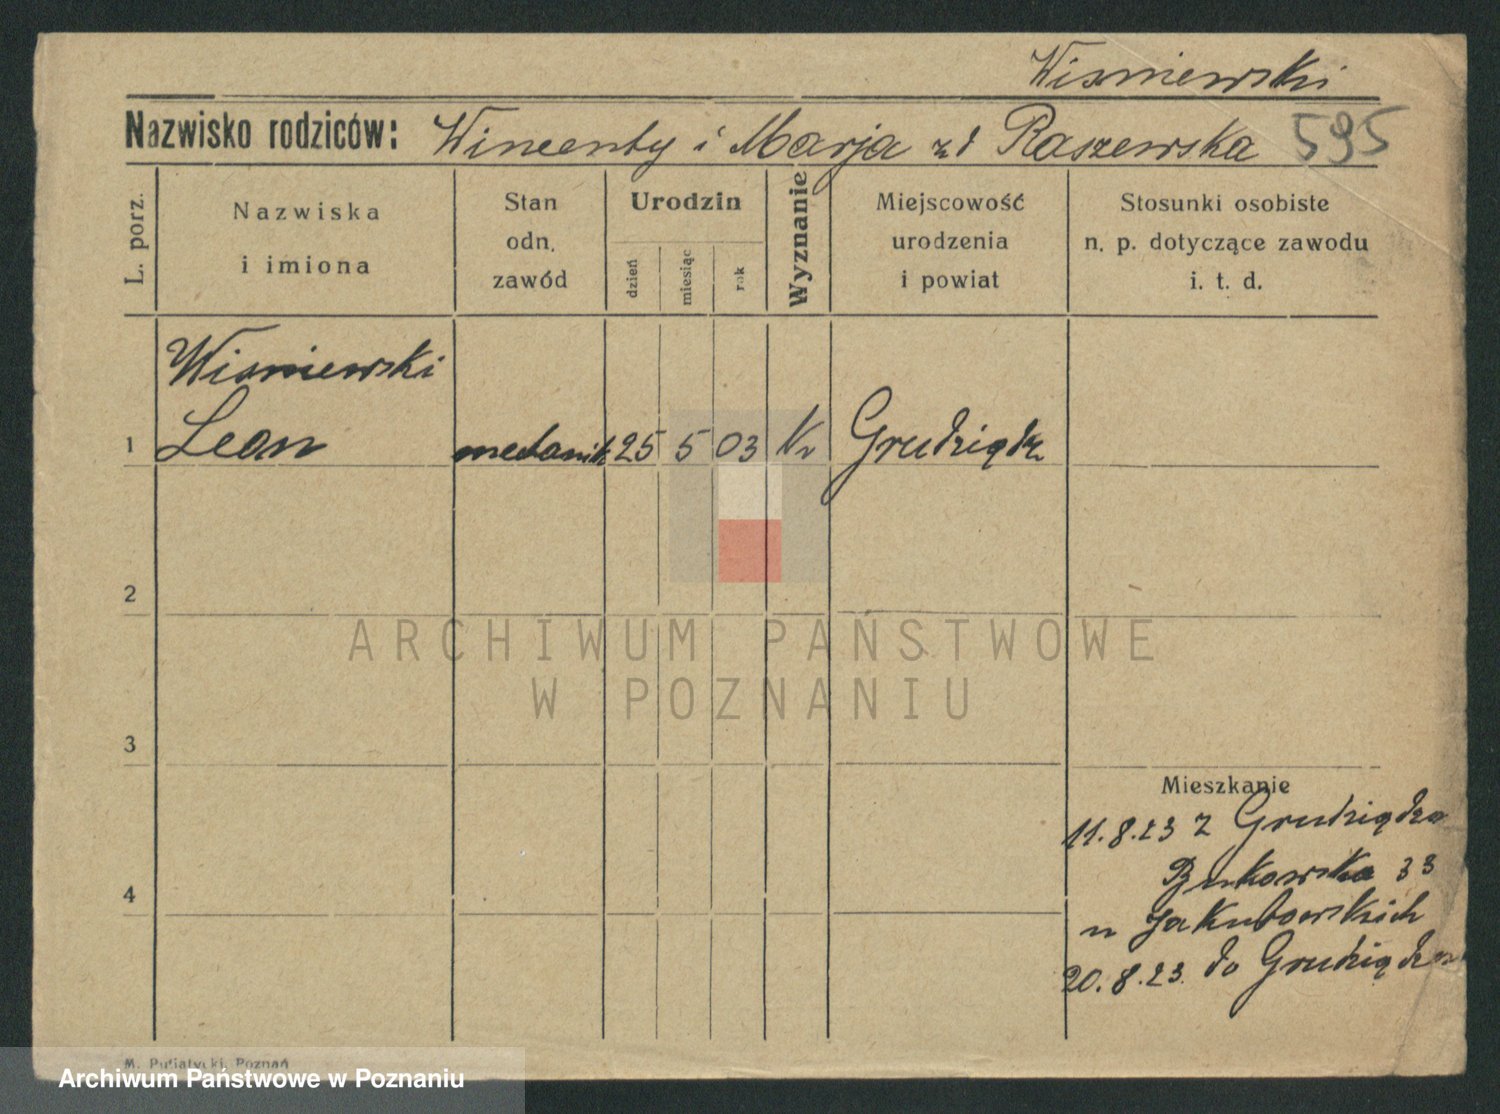 Wisniewski
Nazwisko rodziców: Wincenty i Marja zd Raszewska 595
L. porz.
Nazwiska
i imiona
Stan
odn.
zawód
Urodzin
dzień
miesiąc
rok
Wyznanie
Miejscowość
urodzenia
i powiat
Stosunki osobiste
n. p. dotyczące zawodu
i. t. d.
Wisniewski
1 Leon mechanik 25 5 03 Grudziądz
2
3
4
Mieszkanie
11.8.23 z Grudziądza
Bukowska 33
u Jakubowskich
20.8.23. do Grudziądza
M. Putiatycki, Poznań
ARCHIWUM PAŃSTWOWE
W POZNANIU
Archiwum Państwowe w Poznaniu